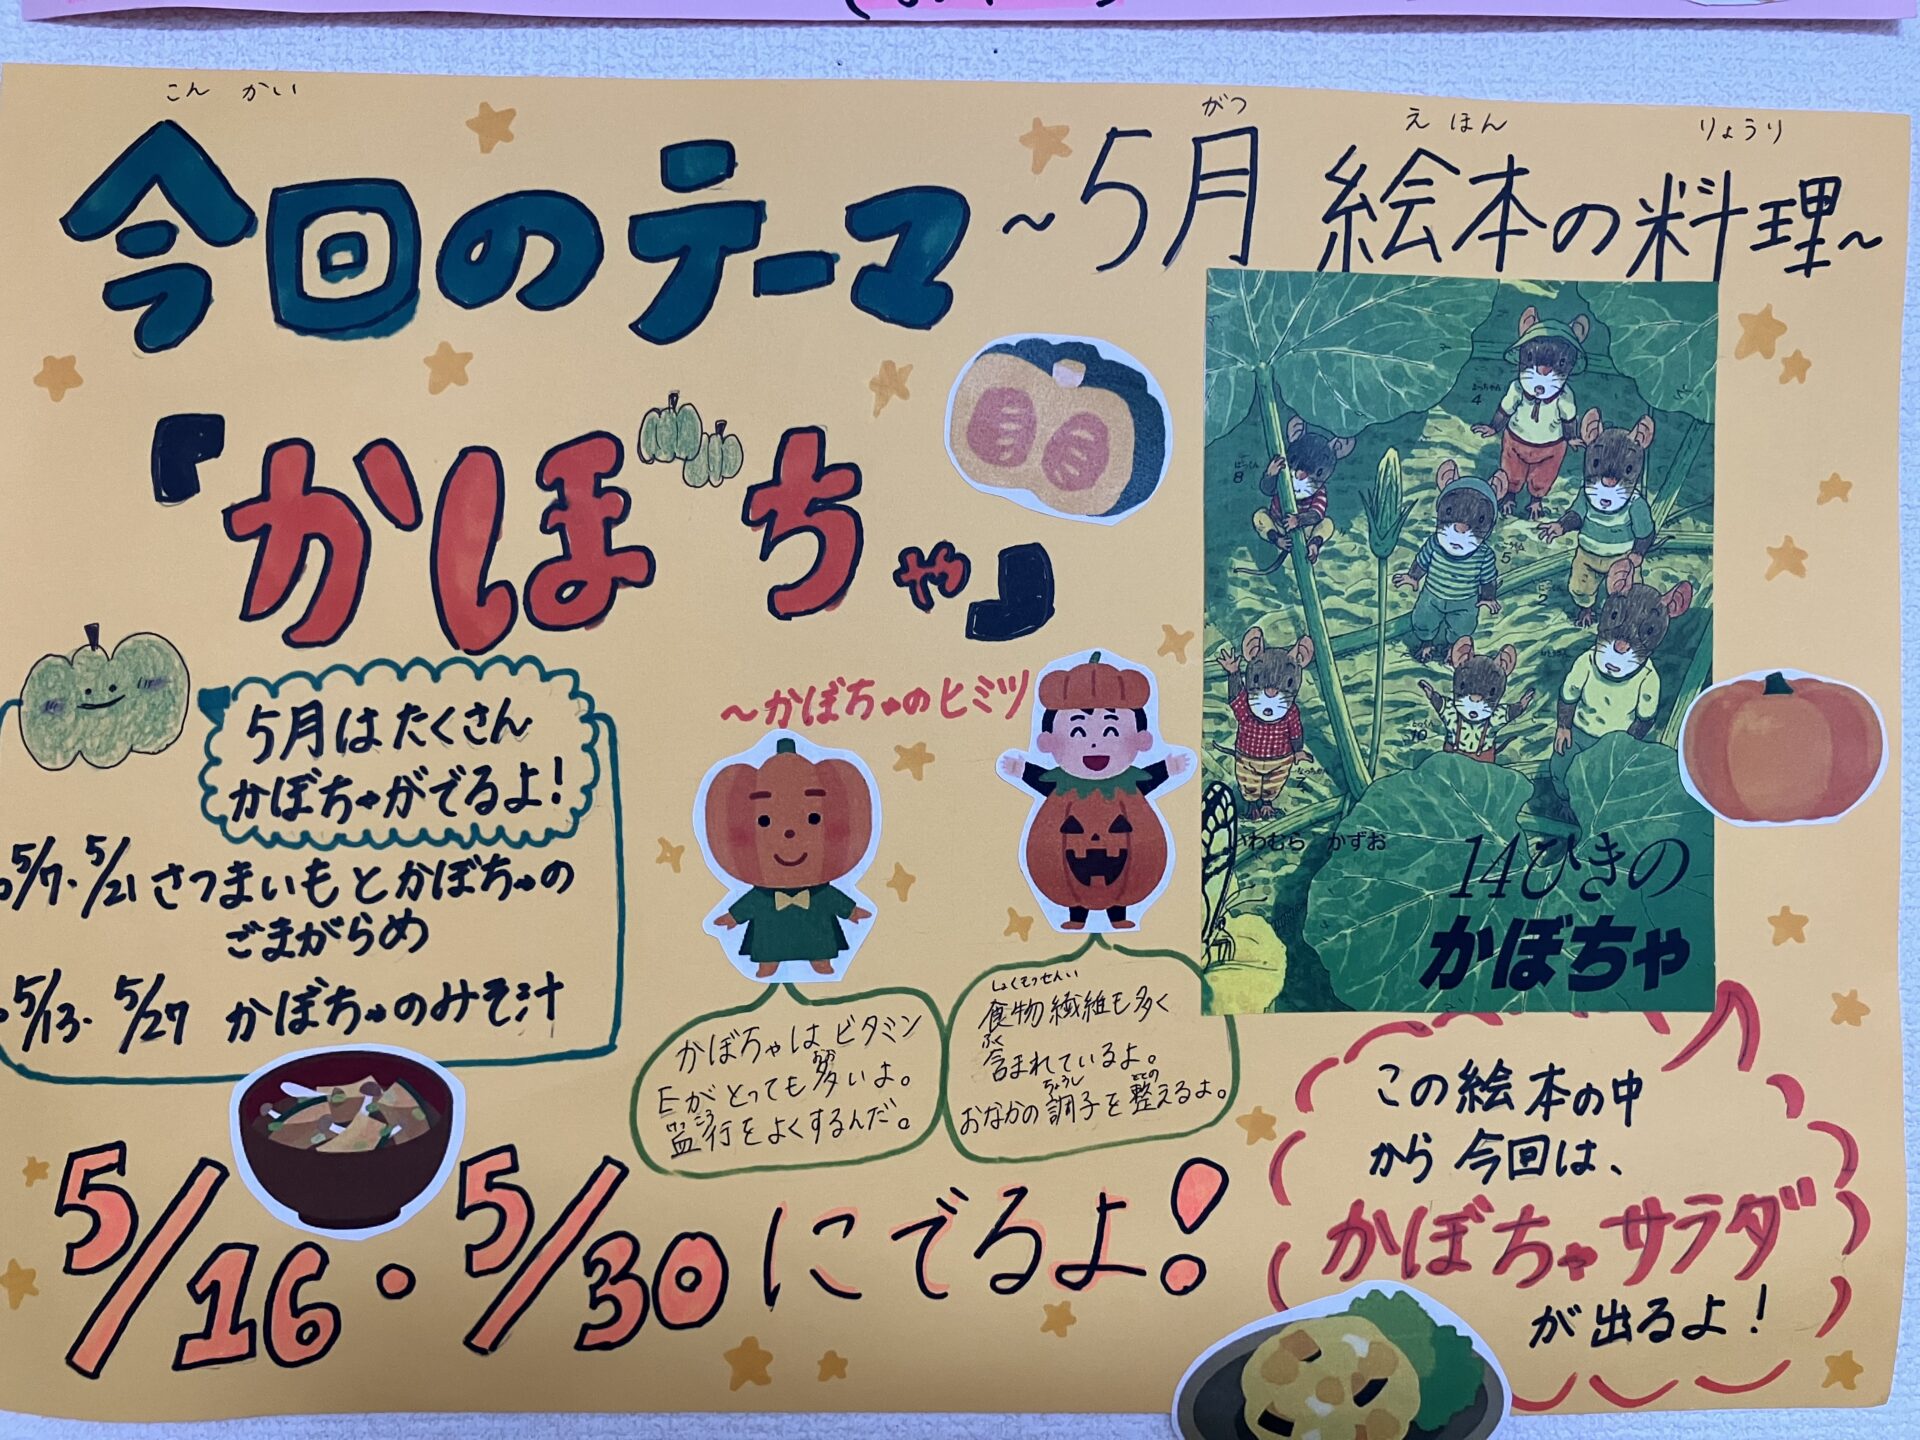 こん かい
今回のテーマ
がつ えほん りょうり
～5月 絵本の料理～
『かぼちゃ』
5月はたくさん
かぼちゃがでるよ！
5/7・5/21 さつまいもとかぼちゃの
ごまがらめ
5/13・5/27 かぼちゃのみそ汁
～かぼちゃのヒミツ
かぼちゃはビタミン
おお
Eがとっても多いよ。
けっこう
血行をよくするんだ。
しょくもつせんい
食物繊維も多く
ふく
含まれているよ。
ちょうし ととの
おなかの調子を整えるよ。
よっちゃん
4
はっくん
8
5
とっくん
10
なっちゃん
7
いわむら かずお
14ひきの
かぼちゃ
この絵本の中
から今回は、
かぼちゃサラダ
が出るよ！
5/16・5/30にでるよ！